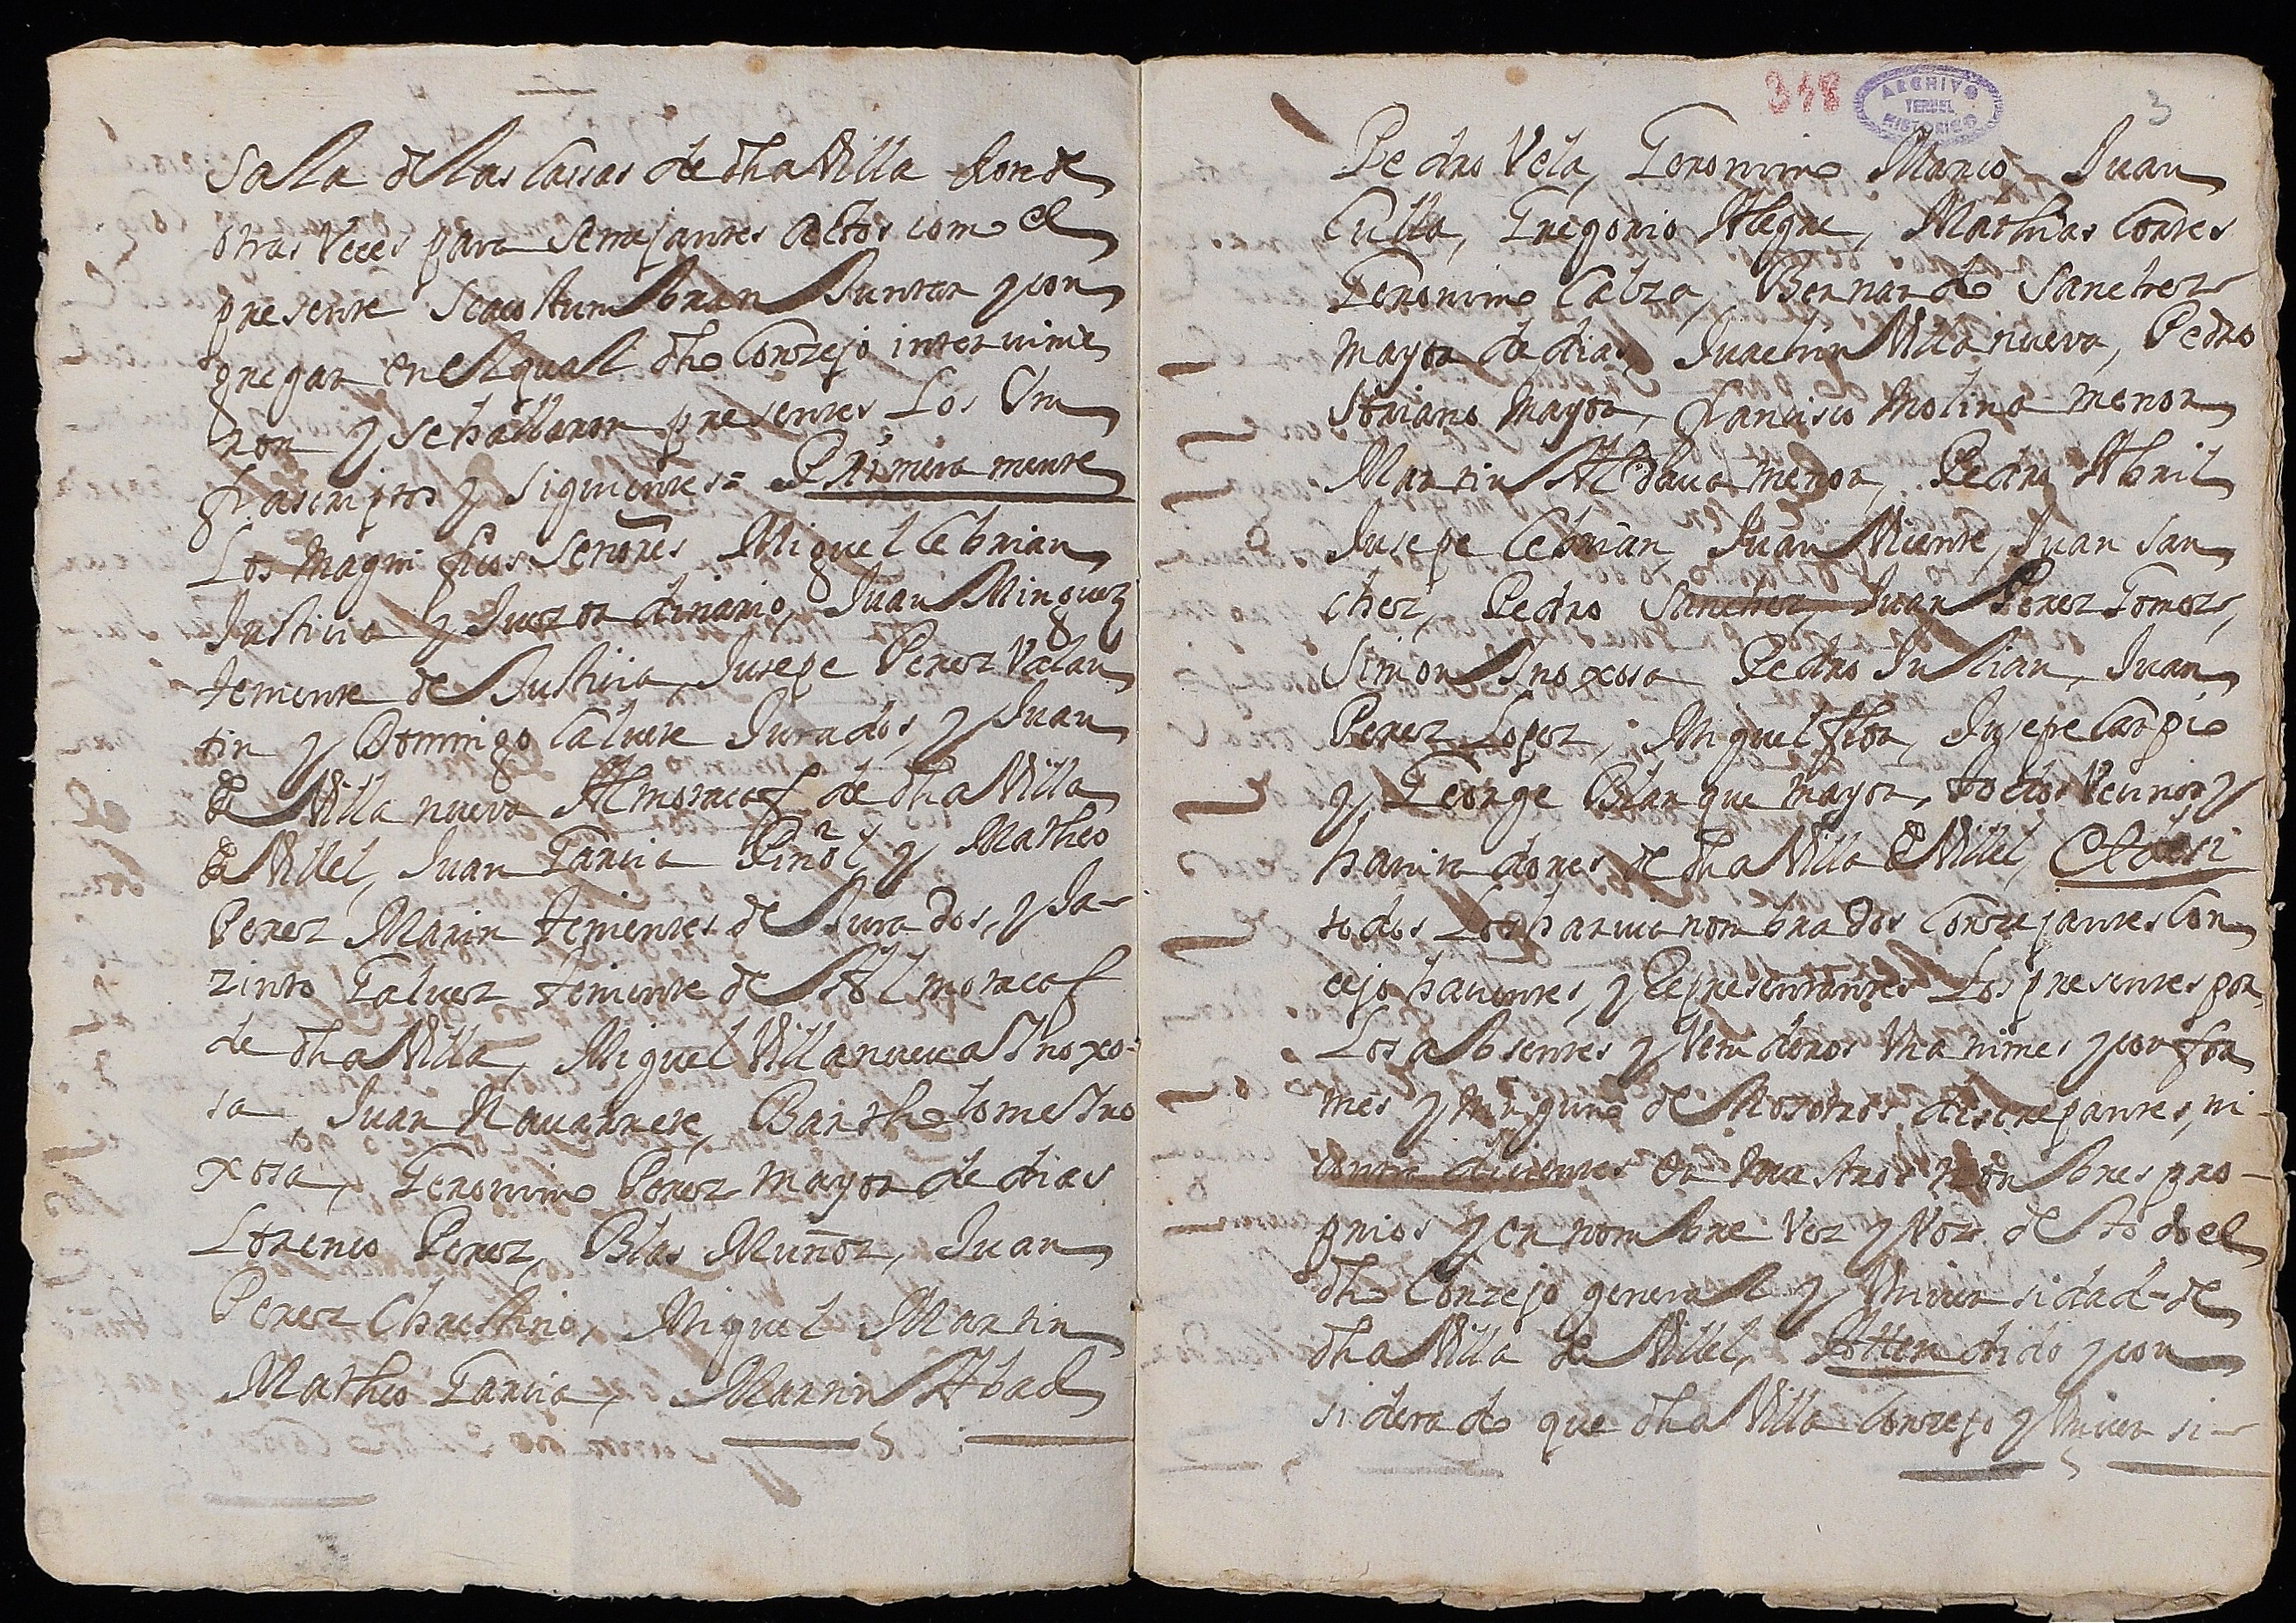 Sala de las Cassas de dha Villa donde
otras Veces para semejantes actos como el
presente se acostumbran Juntar y con
gregar en el qual dho Conzejo intervinie
ron y se hallaron presentes Los In
frascriptos y siguientes = Primeramente
Los Magnificos Señores Miguel Cebrian
Justicia y Juez ordinario, Juan Minguez
teniente de Justicia, Jusepe Perez Valan
tin y Domingo Calvete Jurados, y Juan
de Villanueva Almotacaf de dha Villa
de Villel, Juan Garcia Pinol y Matheo
Perez Marin tenientes de Jurados, y Ja-
zinto Galvez teniente de Almotacaf
de dha Villa, Miguel Villanueva Inoxo-
sa, Juan Navarrete, Bartholome Ino
xosa, Geronimo Perez mayor de dias
Lorenco Perez, Blas Muñoz, Juan
Perez Christino, Miguel Martin
Matheo Garcia, Martin Abad
348
ARCHIVO
TERUEL
HISTORICO
3
Pedro Vela, Geronimo Marco, Juan
Culla, Gregorio Alegre, Mathias Cortes
Geronimo Calza, Bernardo Sanchez
mayor de dias, Juachin Villanueva, Pedro
Soriano mayor, Francisco Molina menor
Martin Aldava menor, Pedro Abril
Jusepe Cebrian, Juan Vicente, Juan San
chez, Pedro Sanchez, Juan Perez Gomez,
Simon Inoxosa Pedro Julian, Juan
Perez Lopez, Miguel flor, Jusepe Carpio
y George Blanque mayor, todos Vecinos y
havitadores de dha Villa de Villel, Et assi
todos Los harriva nombrados Conzejantes Con
cejo havientes, y Representantes Los presentes por
Los absentes y Venideros Vnanimes y confor
mes y ninguno de Nosotros discrepantes, ni
contradicientes en nuestros nombres pro-
prios y en nombre Vez y Voz de todo el
dho Conzejo general y Vniversidad de
dha Villa de Villel, Attendido y con
siderado que dha Villa Conzejo y Vniversi-